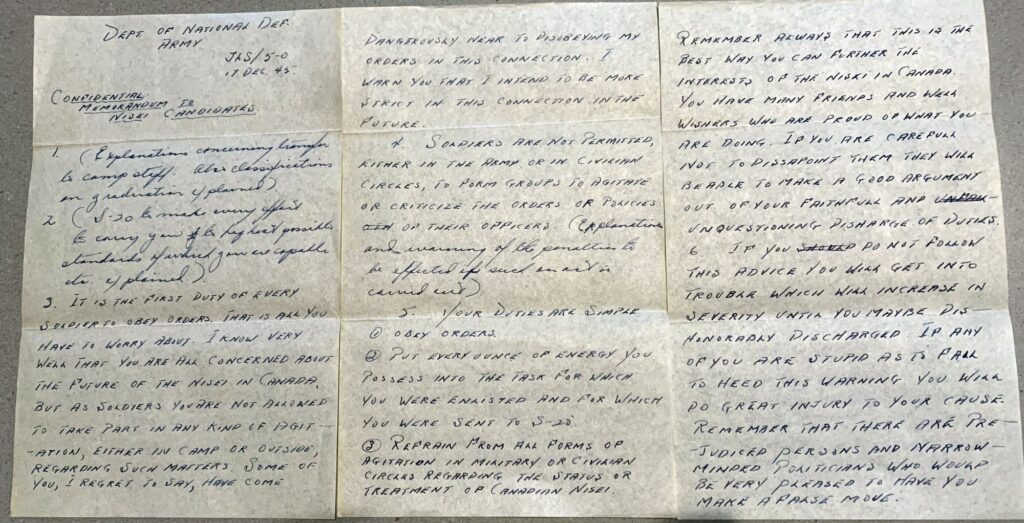 DEPT OF NATIONAL DEF.
ARMY
JLS/5-0
17 DEC. 45
CONFIDENTIAL
MEMORANDUM TO
NISEI CANDIDATES.
1. (Explanations concerning transfer
to camp staff. Also classifications
on graduation explained).
2 (S-20 to make every effort
to carry you to highest possible
standards of which you are capable
etc. explained).
3. IT IS THE FIRST DUTY OF EVERY
SOLDIER TO OBEY ORDERS. THAT IS ALL YOU
HAVE TO WORRY ABOUT. I KNOW VERY
WELL THAT YOU ARE ALL CONCERNED ABOUT
THE FUTURE OF THE NISEI IN CANADA.
BUT AS SOLDIERS YOU ARE NOT ALLOWED
TO TAKE PART IN ANY KIND OF AGIT-
-ATION, EITHER IN CAMP OR OUTSIDE,
REGARDING SUCH MATTERS. SOME OF
YOU, I REGRET TO SAY, HAVE COME
DANGEROUSLY NEAR TO DISOBEYING MY
ORDERS IN THIS CONNECTION. I
WARN YOU THAT I INTEND TO BE MORE
STRICT IN THIS CONNECTION IN THE
FUTURE.
4. SOLDIERS ARE NOT PERMITTED,
EITHER IN THE ARMY OR IN CIVILIAN
CIRCLES, TO FORM GROUPS TO AGITATE
OR CRITICIZE THE ORDERS OR POLICIES
OF THEIR OFFICERS. (Explanations
and warning of the penalties to
be effected if such an act is
carried out).
5. YOUR DUTIES ARE SIMPLE
① OBEY ORDERS.
② PUT EVERY OUNCE OF ENERGY YOU
POSSESS INTO THE TASK FOR WHICH
YOU WERE ENLISTED AND FOR WHICH
YOU WERE SENT TO S-20
③ REFRAIN FROM ALL FORMS OF
AGITATION IN MILITARY OR CIVILIAN
CIRCLES REGARDING THE STATUS OR
TREATMENT OF CANADIAN NISEI
REMEMBER ALWAYS THAT THIS IS THE
BEST WAY YOU CAN FURTHER THE
INTERESTS OF THE NISEI IN CANADA.
YOU HAVE MANY FRIENDS AND WELL
WISHERS WHO ARE PROUD OF WHAT YOU
ARE DOING. IF YOU ARE CAREFULL
NOT TO DISSAPOINT THEM THEY WILL
BE ABLE TO MAKE A GOOD ARGUMENT
OUT OF YOUR FAITHFULL AND
UNQUESTIONING DISHARGE OF DUTIES.
6. IF YOU DO NOT FOLLOW
THIS ADVICE YOU WILL GET INTO
TROUBLE WHICH WILL INCREASE IN
SEVERITY UNTIL YOU MAYBE DIS-
HONORABLY DISCHARGED IF ANY
OF YOU ARE STUPID AS TO FALL
TO HEED THIS WARNING YOU WILL
DO GREAT INJURY TO YOUR CAUSE.
REMEMBER THAT THERE ARE PRE-
JUDICED PERSONS AND NARROW-
MINDED POLITICIANS WHO WOULD
BE VERY PLEASED TO HAVE YOU
MAKE A FALSE MOVE.